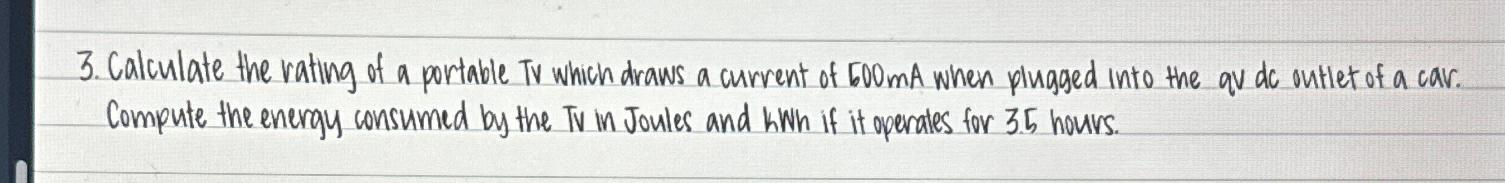 3. Calculate the rating of a portable TV which draws a current of 500mA when plugged into the 9V dc outlet of a car.
Compute the energy consumed by the TV in Joules and kWh if it operates for 3.5 hours.